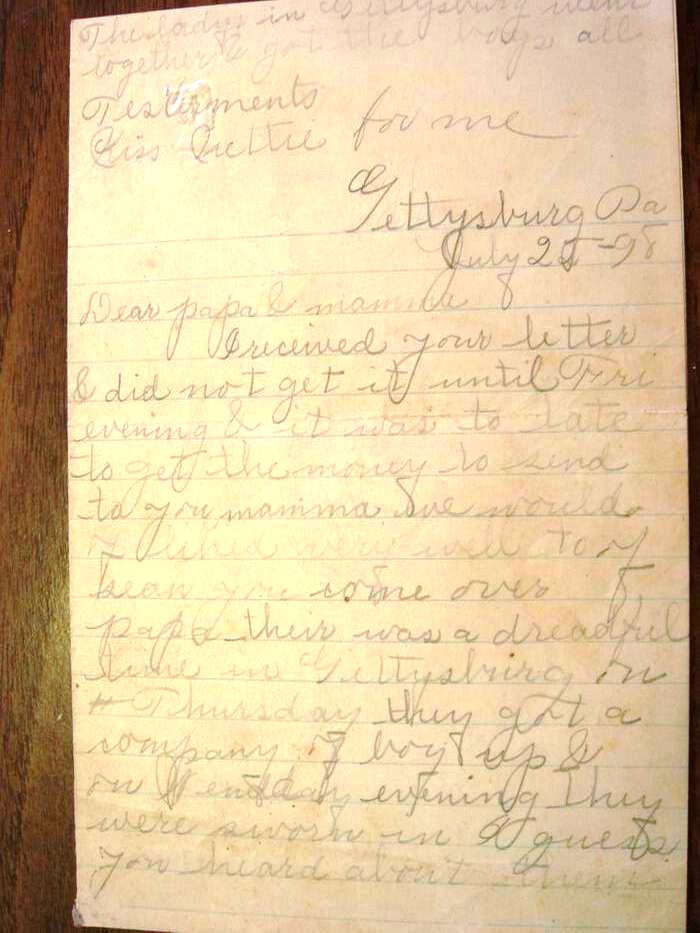 The ladys in Gettysburg went
together & got the boys all
Testerments
Kiss Nettie for me
Gettysburg Pa
July 25-98
Dear papa & mamma
I received your letter
& did not get it until Fri
evening & it was to late
to get the money to send
to you mamma & we would
of liked very well to of
sean you come over
papa their was a dreadful
time in Gettysburg on
Thursday they got a
company of boys up &
on evening they
were sworn in I guess
you heard about them